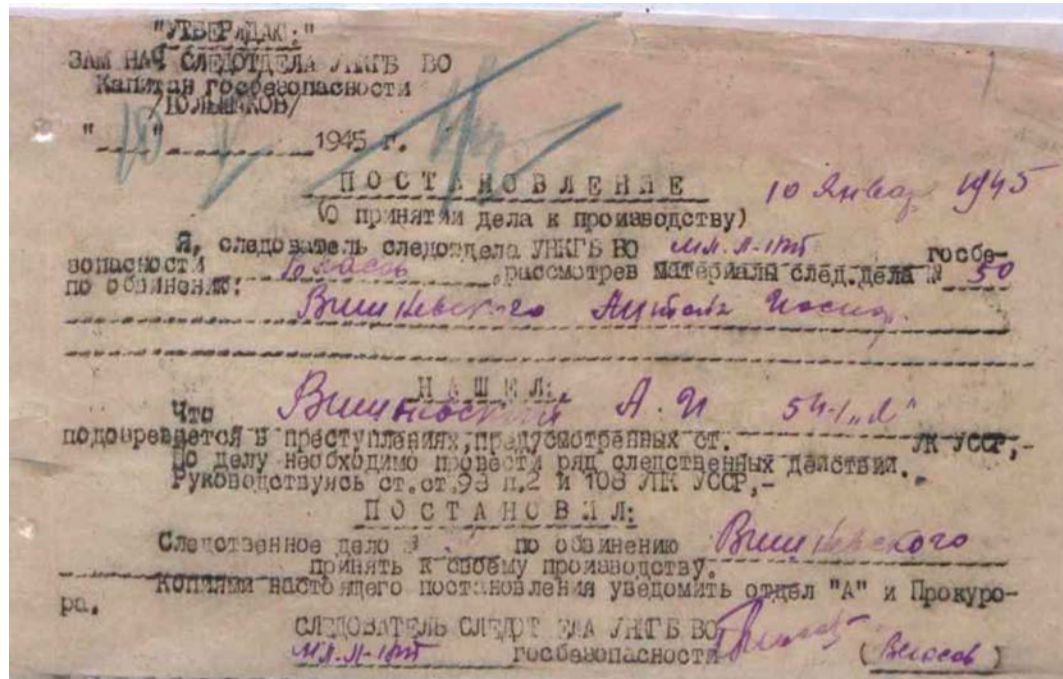 "УТВЕРЖДАЮ:"
ЗАМ НАЧ СЛЕДОТДЕЛА УНКГБ ВО
Капитан госбезопасности
" 10 " 1945 г.
ПОСТАНОВЛЕНИЕ 10 Январ 1945
(О принятии дела к производству)
Я, следователь следотдела УНКГБ ВО мл. л-нт госбе-
зопасности Власов, рассмотрев материалы след.дела № 50
по обвинению:
Вишневского Антона Иосиф.
НАШЕЛ:
Что Вишневский А. И 54-1 „а"
подозревается в преступлениях, предусмотренных ст. УК УССР,-
По делу необходимо провести ряд следственных действий.
Руководствуясь ст.ст.93 п.2 и 108 УПК УССР,-
ПОСТАНОВИЛ:
Следственное дело № по обвинению Вишневского
принять к своему производству.
Копиями настоящего постановления уведомить отдел "А" и Прокуро-
ра.
СЛЕДОВАТЕЛЬ СЛЕДОТДЕЛА УНКГБ ВО
мл. л-нт госбезопасности (Власов)